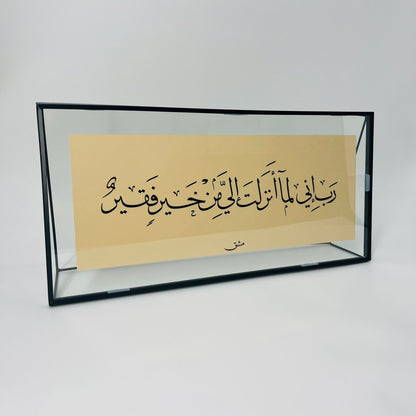 رَبِّ إِنِّي لِمَا أَنزَلْتَ إِلَيَّ مِنْ خَيْرٍ فَقِيرٌ
مشق